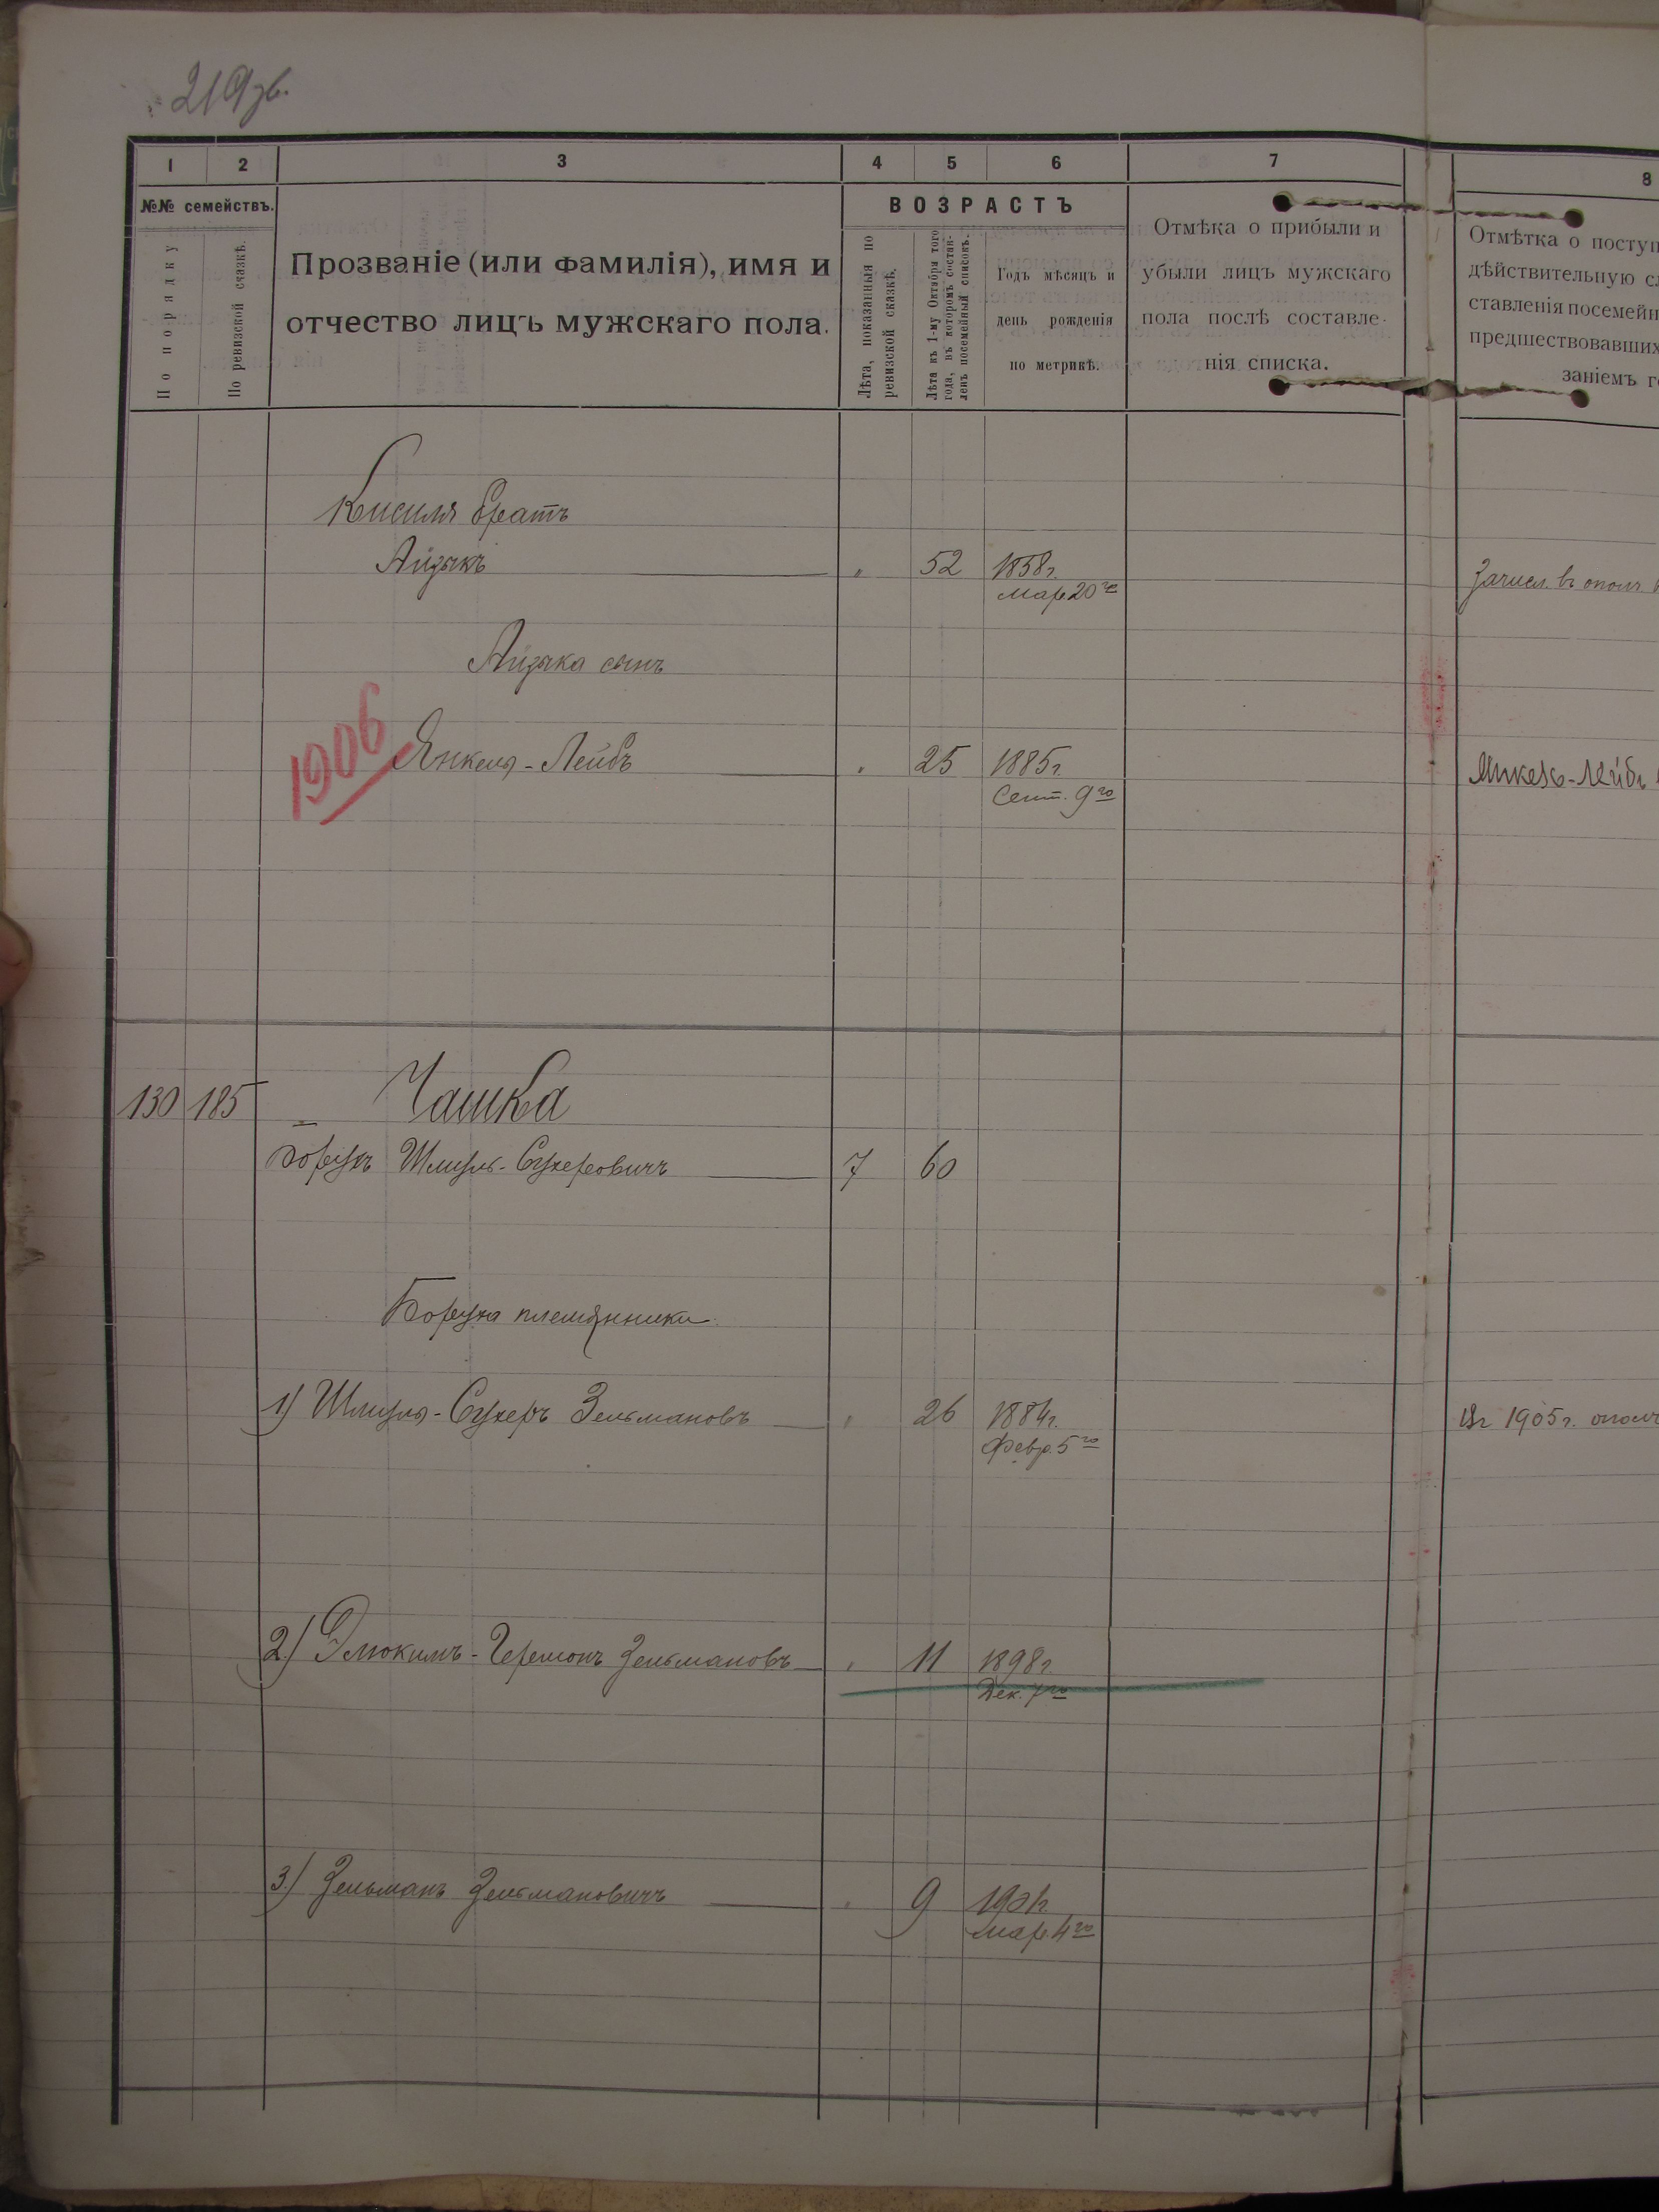 219 зв.
1 2 3 4 5 6 7 8
№№ семействъ.
По порядку
По ревизской сказкѣ.
Прозваніе (или фамилія), имя и
отчество лицъ мужскаго пола.
ВОЗРАСТЪ
Лѣта, показанныя по
ревизской сказкѣ.
Лѣта къ 1-му Октября того
года, въ которомъ состав-
ленъ посемейный списокъ.
Годъ мѣсяцъ и
день рожденія
по метрикѣ.
Отмѣка о прибыли и
убыли лицъ мужскаго
пола послѣ составле-
нія списка.
Отмѣтка о поступ
дѣйствительную сл
ставленія посемейн
предшествовавших
заніемъ г
Кисиля братъ
Айзыкъ " 52 1858 г. Зачисл. въ ополч.
Мар 20го
Айзыка сынъ
1906
Янкель-Лейбъ " 25 1885 г. Янкель-Лейбъ
Сент. 9го
130 185 Чашка
Борухъ Шмуль-Сухеровичъ 7 60
Боруха племянники
1) Шмуль-Сухеръ Зельмановъ " 26 1884 г. Въ 1905 г. ополч
Февр. 5го
2) Элюкимъ- Зельмановъ " 11 1898 г.
Дек. 7го
3) Зельманъ Зельмановичъ " 9 1901 г.
Мар 4го